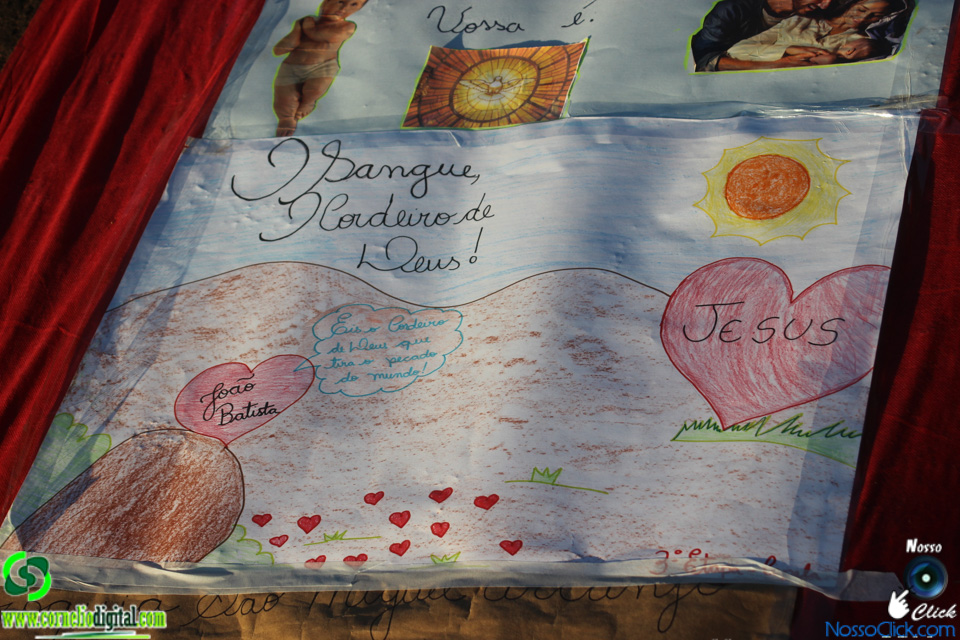 Vossa é:
O Sangue,
O Cordeiro de
Deus!
JESUS
Eis o Cordeiro
de Deus que
tira o pecado
do mundo!
João
Batista
3º
São Miguel Arcanjo
www.corneliodigital.com
Nosso
Click
NossoClick.com